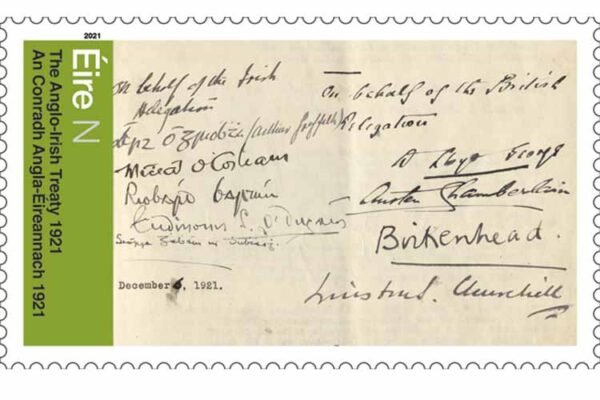 2021
Éire N
The Anglo-Irish Treaty 1921
An Conradh Angla-Éireannach 1921
On behalf of the Irish
Delegation
(Arthur Griffith)
Míceál Ó Coileáin
Riobárd Bartún
December 6, 1921.
On behalf of the British
Delegation
D Lloyd George
Austen Chamberlain
Birkenhead.
Winston S. Churchill